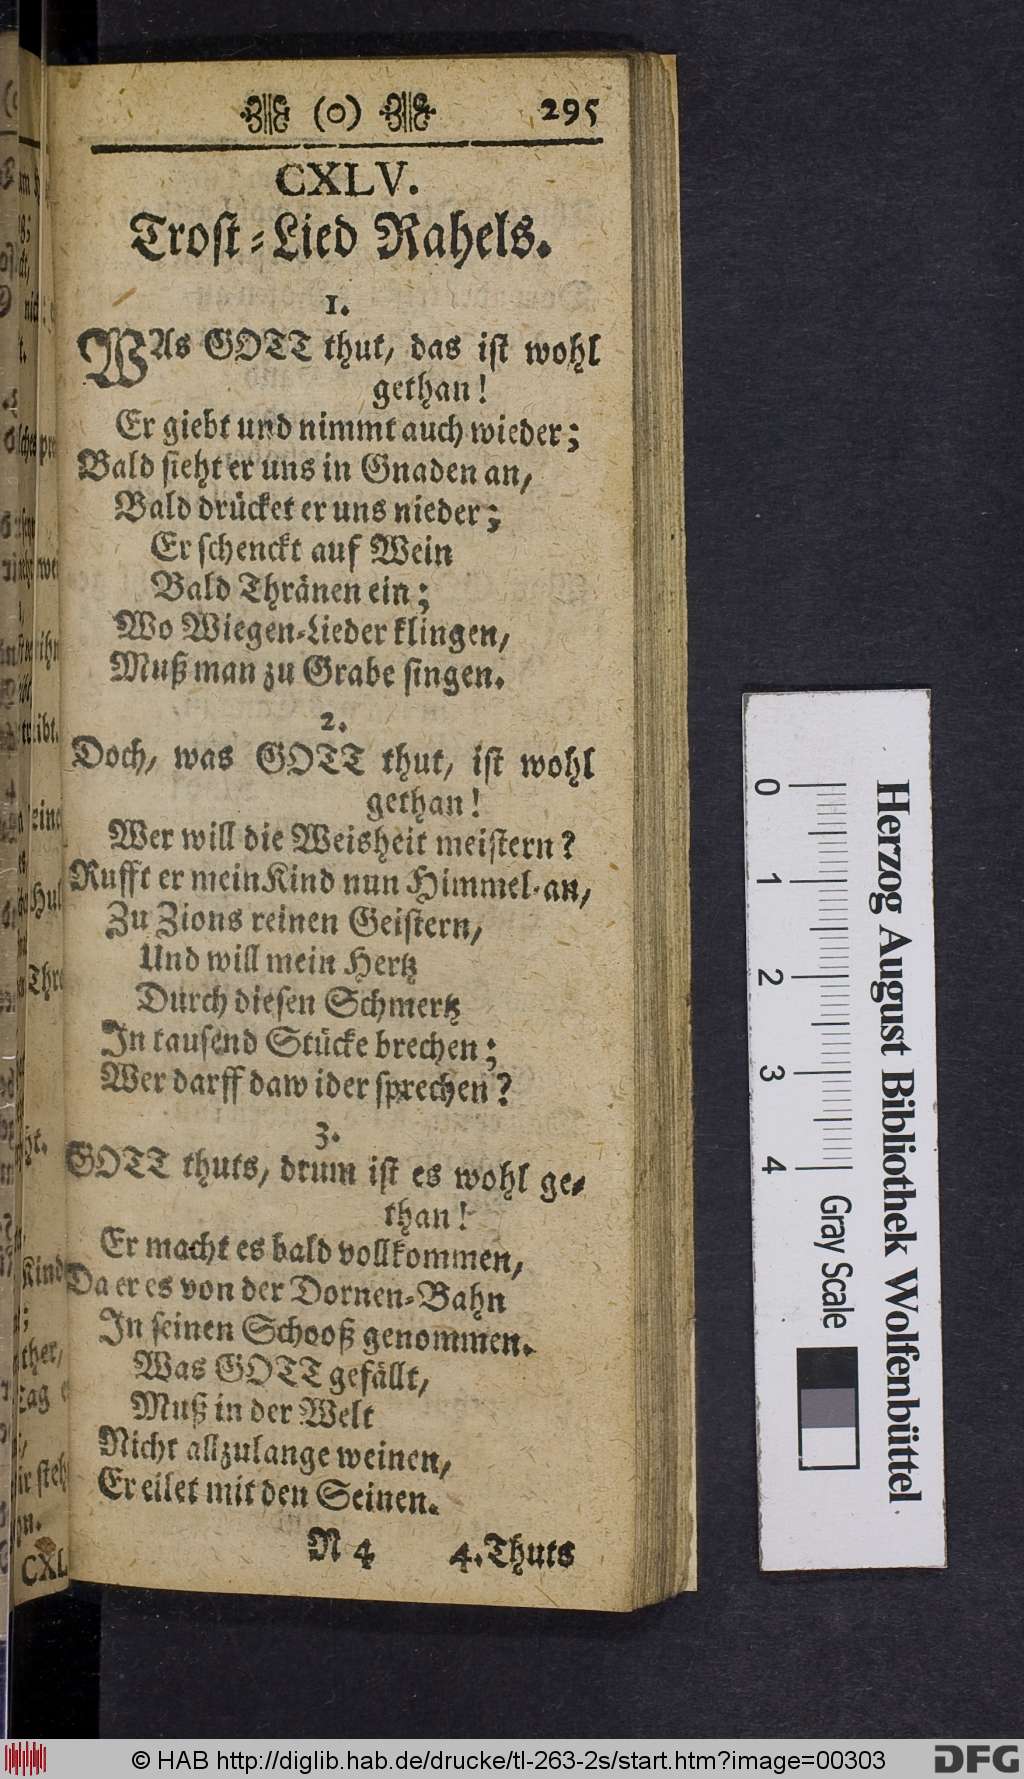 (o) 295
CXLV.
Trost-Lied Rahels.
1.
WAs GOTT thut, das ist wohl
gethan!
Er giebt und nimmt auch wieder;
Bald sieht er uns in Gnaden an,
Bald drücket er uns nieder;
Er schenckt auf Wein
Bald Thränen ein;
Wo Wiegen-Lieder klingen,
Muß man zu Grabe singen.
2.
Doch, was GOTT thut, ist wohl
gethan!
Wer will die Weisheit meistern?
Rufft er mein Kind nun Himmel-an,
Zu Zions reinen Geistern,
Und will mein Hertz
Durch diesen Schmertz
In tausend Stücke brechen;
Wer darff daw ider sprechen?
3.
GOTT thuts, drum ist es wohl ge-
than!
Er macht es bald vollkommen,
Da er es von der Dornen-Bahn
In seinen Schooß genommen.
Was GOTT gefällt,
Muß in der Welt
Nicht allzulange weinen,
Er eilet mit den Seinen.
N 4 4. Thuts
CXL
Herzog August Bibliothek Wolfenbüttel
0 1 2 3 4 Gray Scale
© HAB http://diglib.hab.de/drucke/tl-263-2s/start.htm?image=00303
DFG